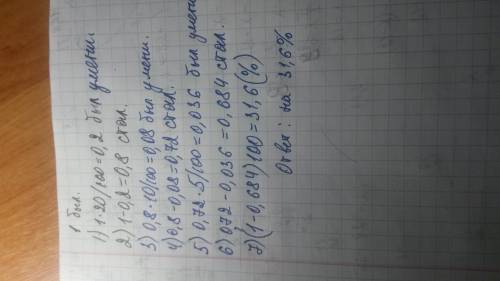 1 был.
1) 1·20/100=0,2 был умени.
2) 1-0,2=0,8 стал.
3) 0,8·10/100=0,08 был умени.
4) 0,8-0,08=0,72 стал.
5) 0,72·5/100=0,036 был умени
6) 0,72-0,036=0,684 стал.
7) (1-0,684)100=31,6(%)
Ответ: на 31,6%